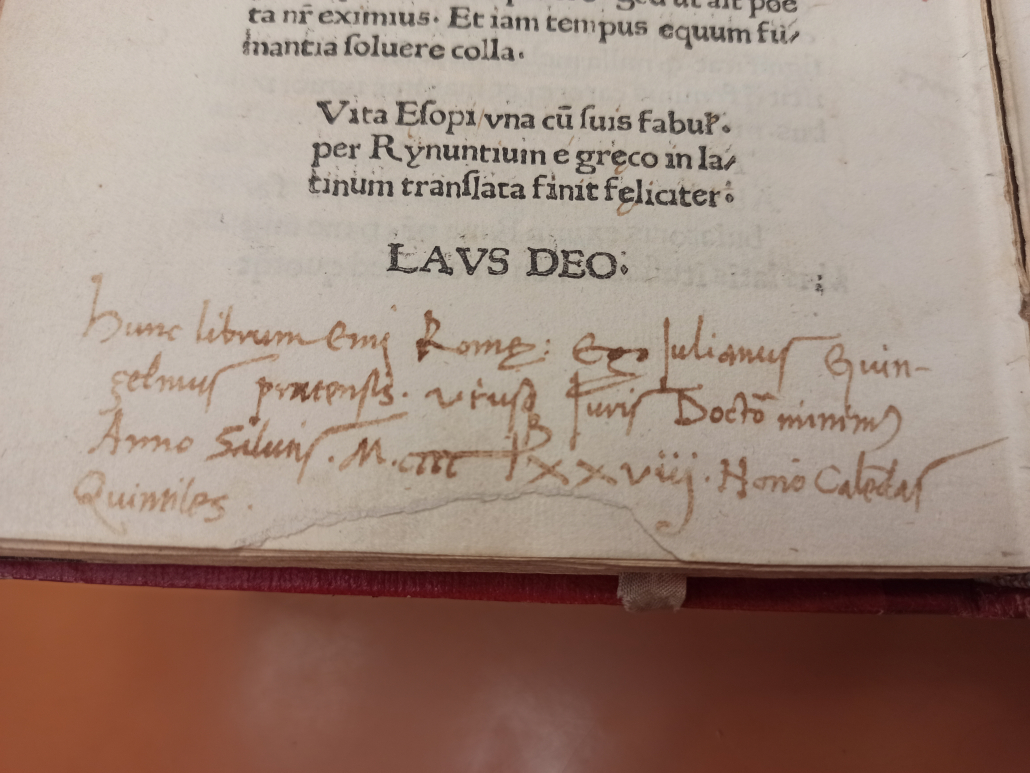 ſed ut ait poe
ta nr̄ eximius. Et iam tempus equum fu/
mantia ſoluere colla.
Vita Eſopi vna cū ſuis fabuꝉ.
per Rynuntium e gręco in la/
tinum tranſlata finit feliciter.
LAVS DEO.
hunc librum Emj Romę: Ego Julianus Guin-
gelmus pratensis. Juris Doctō minimus
Anno Salutis. M. cccc Lxxviij. Nono Calēdas
Quintiles.